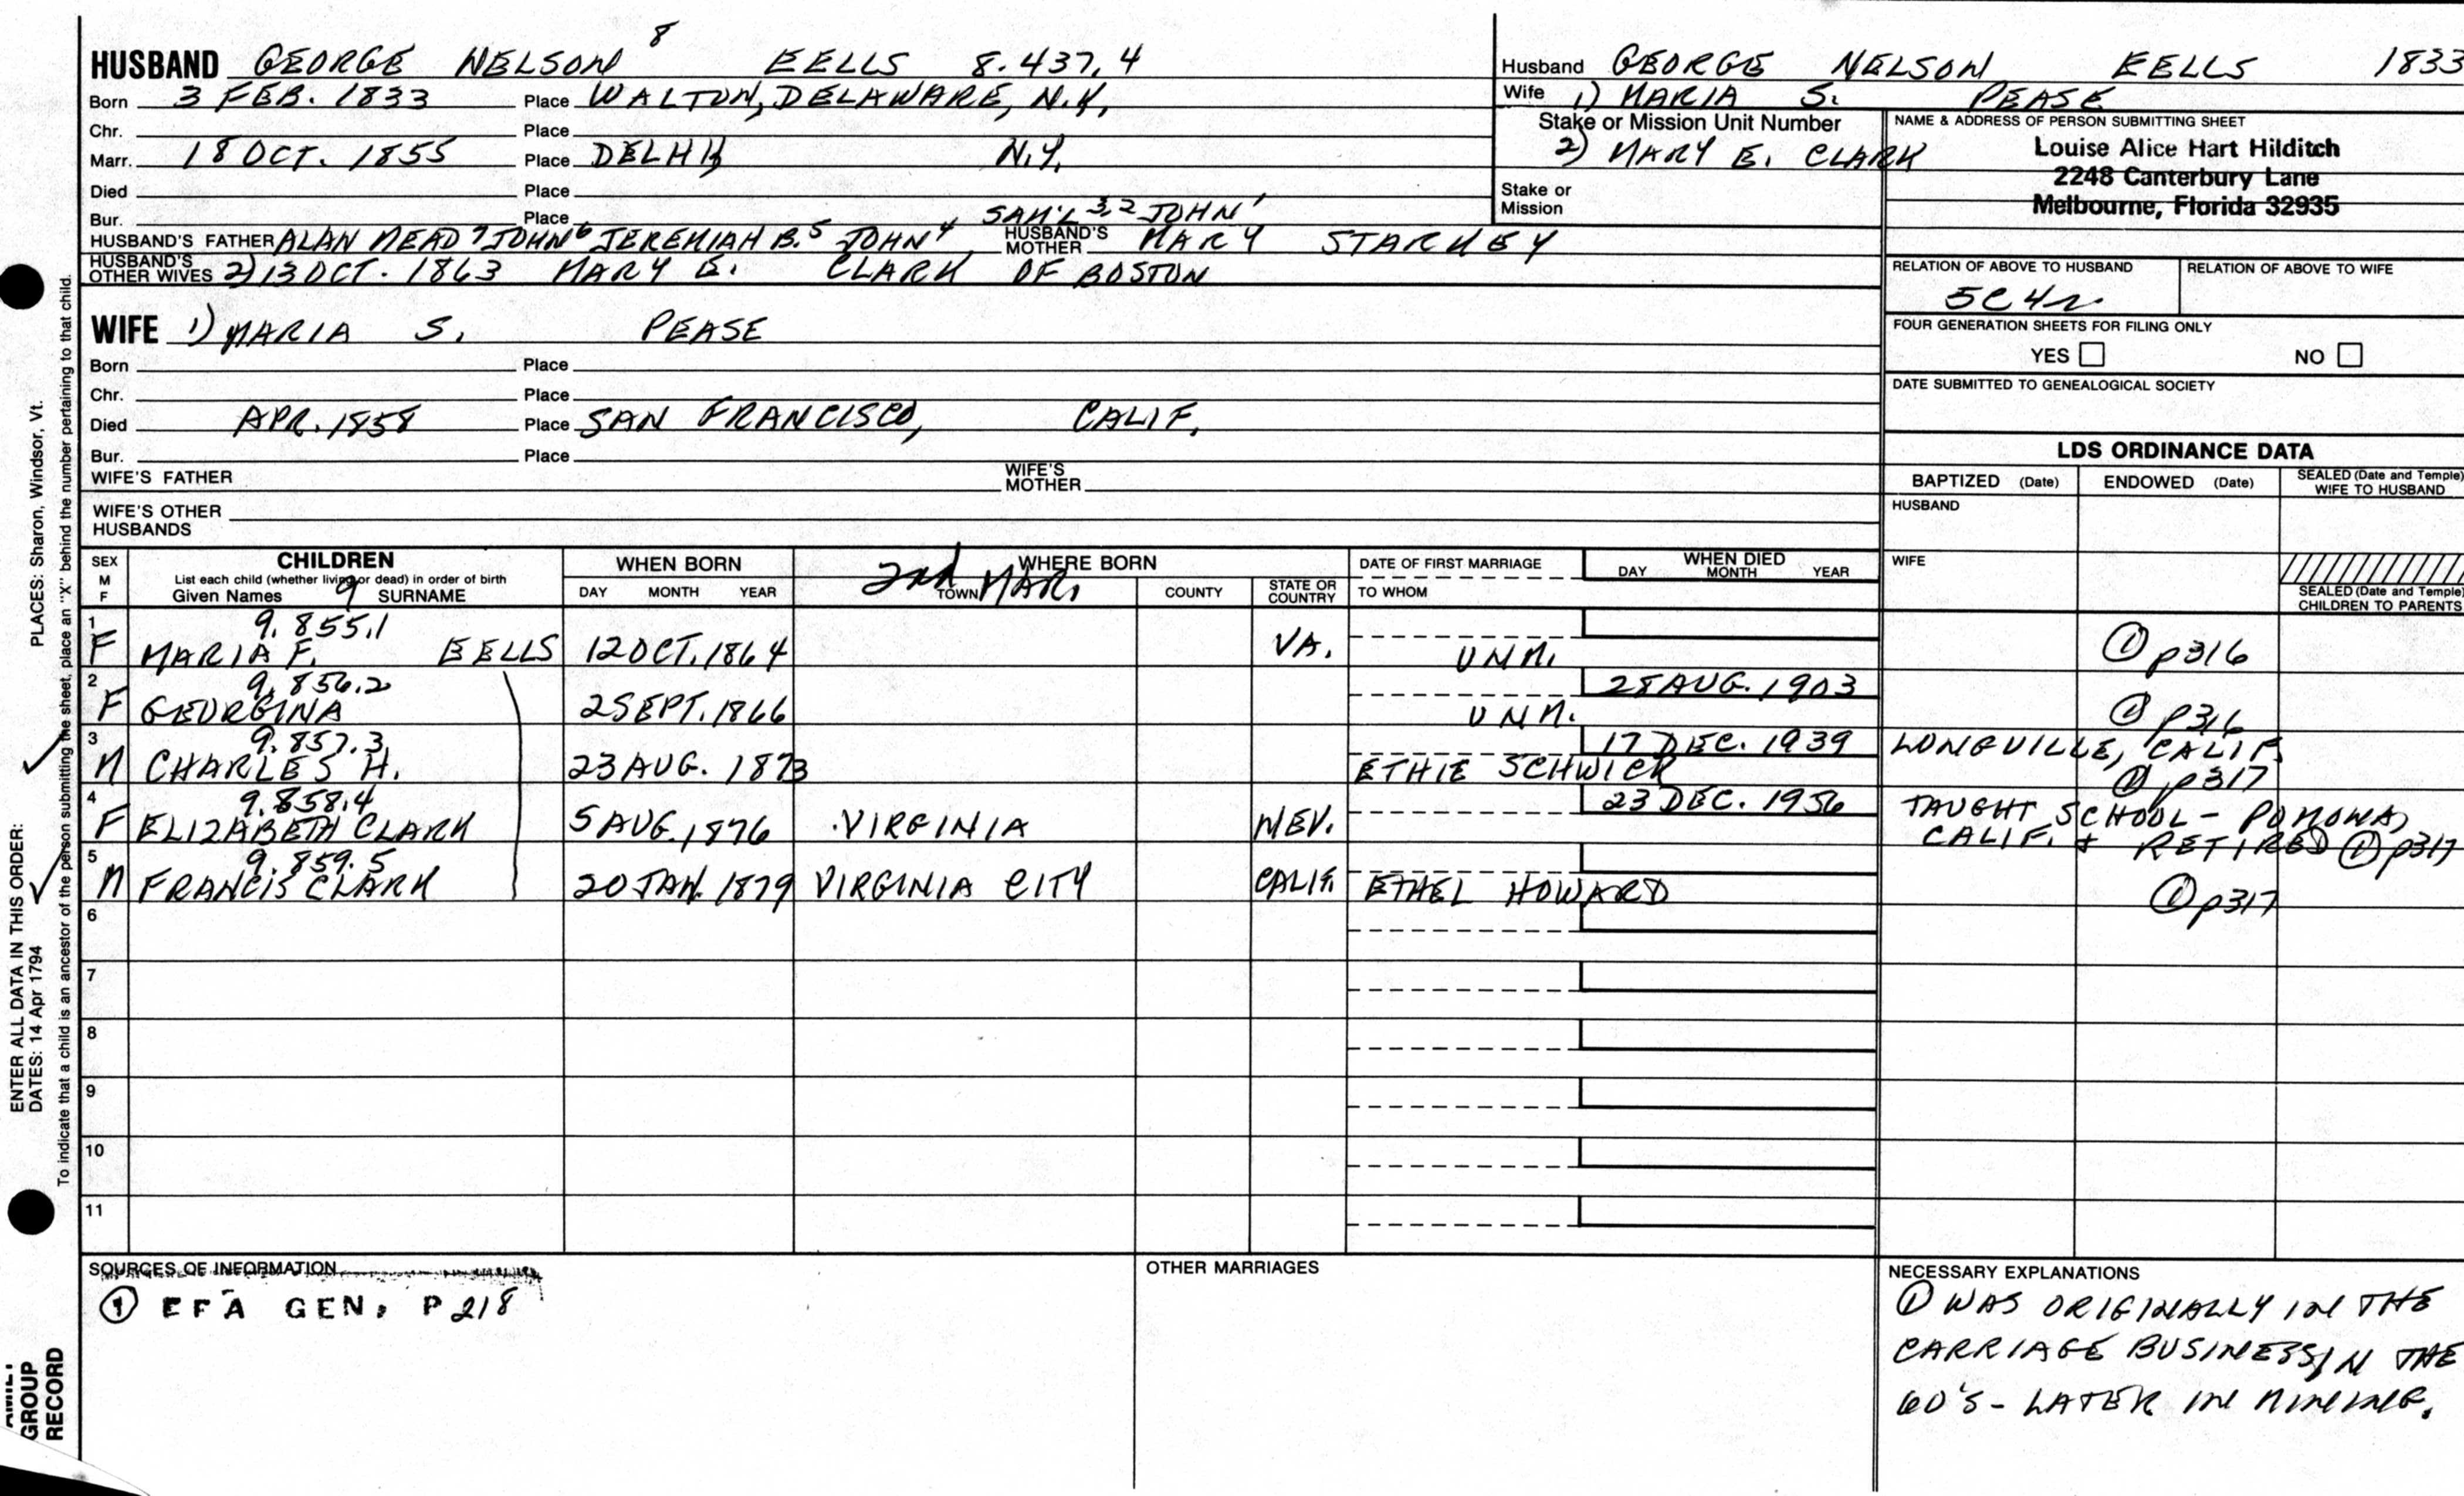 HUSBAND GEORGE NELSON 8 EELLS 8.437.4
Born 3 FEB. 1833 Place WALTON, DELAWARE, N.Y.
Chr. Place
Marr. 18 OCT. 1855 Place DELHI, N.Y.
Died Place
Bur. Place SAM'L 3,2 JOHN 1
HUSBAND'S FATHER ALAN MEAD 7 JOHN 6 JEREMIAH B. 5 JOHN 4 HUSBAND'S MOTHER MARY STARKEY
HUSBAND'S OTHER WIVES 2) 13 OCT. 1863 MARY E. CLARK OF BOSTON
Husband GEORGE NELSON EELLS 1833
Wife 1) MARIA S. PEASE
Stake or Mission Unit Number
2) MARY E. CLARK
Stake or Mission
NAME & ADDRESS OF PERSON SUBMITTING SHEET
Louise Alice Hart Hilditch
2248 Canterbury Lane
Melbourne, Florida 32935
RELATION OF ABOVE TO HUSBAND RELATION OF ABOVE TO WIFE
5C4r.
FOUR GENERATION SHEETS FOR FILING ONLY
YES NO
DATE SUBMITTED TO GENEALOGICAL SOCIETY
WIFE 1) MARIA S. PEASE
Born Place
Chr. Place
Died APR. 1858 Place SAN FRANCISCO, CALIF.
Bur. Place
WIFE'S FATHER WIFE'S MOTHER
WIFE'S OTHER HUSBANDS
LDS ORDINANCE DATA
BAPTIZED (Date) ENDOWED (Date) SEALED (Date and Temple) WIFE TO HUSBAND
HUSBAND
WIFE
SEALED (Date and Temple) CHILDREN TO PARENTS
SEX M F CHILDREN WHEN BORN WHERE BORN DATE OF FIRST MARRIAGE WHEN DIED
List each child (whether living or dead) in order of birth
Given Names 9 SURNAME DAY MONTH YEAR 2nd MAR. TOWN COUNTY STATE OR COUNTRY TO WHOM DAY MONTH YEAR
1 9.855.1
F MARIA F. EELLS 12 OCT. 1864 VA. UNM. ① p316
2 9.856.2 28 AUG. 1903
F GEORGINA 2 SEPT. 1866 UNM. ① p316
3 9.857.3 17 DEC. 1939 LONGVILLE, CALIF.
M CHARLES H. 23 AUG. 1873 ETHIE SCHWICK ① p317
4 9.858.4 23 DEC. 1956 TAUGHT SCHOOL - POMONA,
F ELIZABETH CLARK 5 AUG. 1876 VIRGINIA NEV. CALIF. & RETIRED ① p317
5 9.859.5
M FRANCIS CLARK 20 JAN. 1879 VIRGINIA CITY CALIF. ETHEL HOWARD ① p317
6
7
8
9
10
11
SOURCES OF INFORMATION
① EFA GEN. P 218
OTHER MARRIAGES
NECESSARY EXPLANATIONS
① WAS ORIGINALLY IN THE
CARRIAGE BUSINESS IN THE
60'S - LATER IN MINING.
ENTER ALL DATA IN THIS ORDER:
DATES: 14 Apr 1794 PLACES: Sharon, Windsor, Vt.
To indicate that a child is an ancestor of the person submitting the sheet, place an "X" behind the number pertaining to that child.
GROUP
RECORD